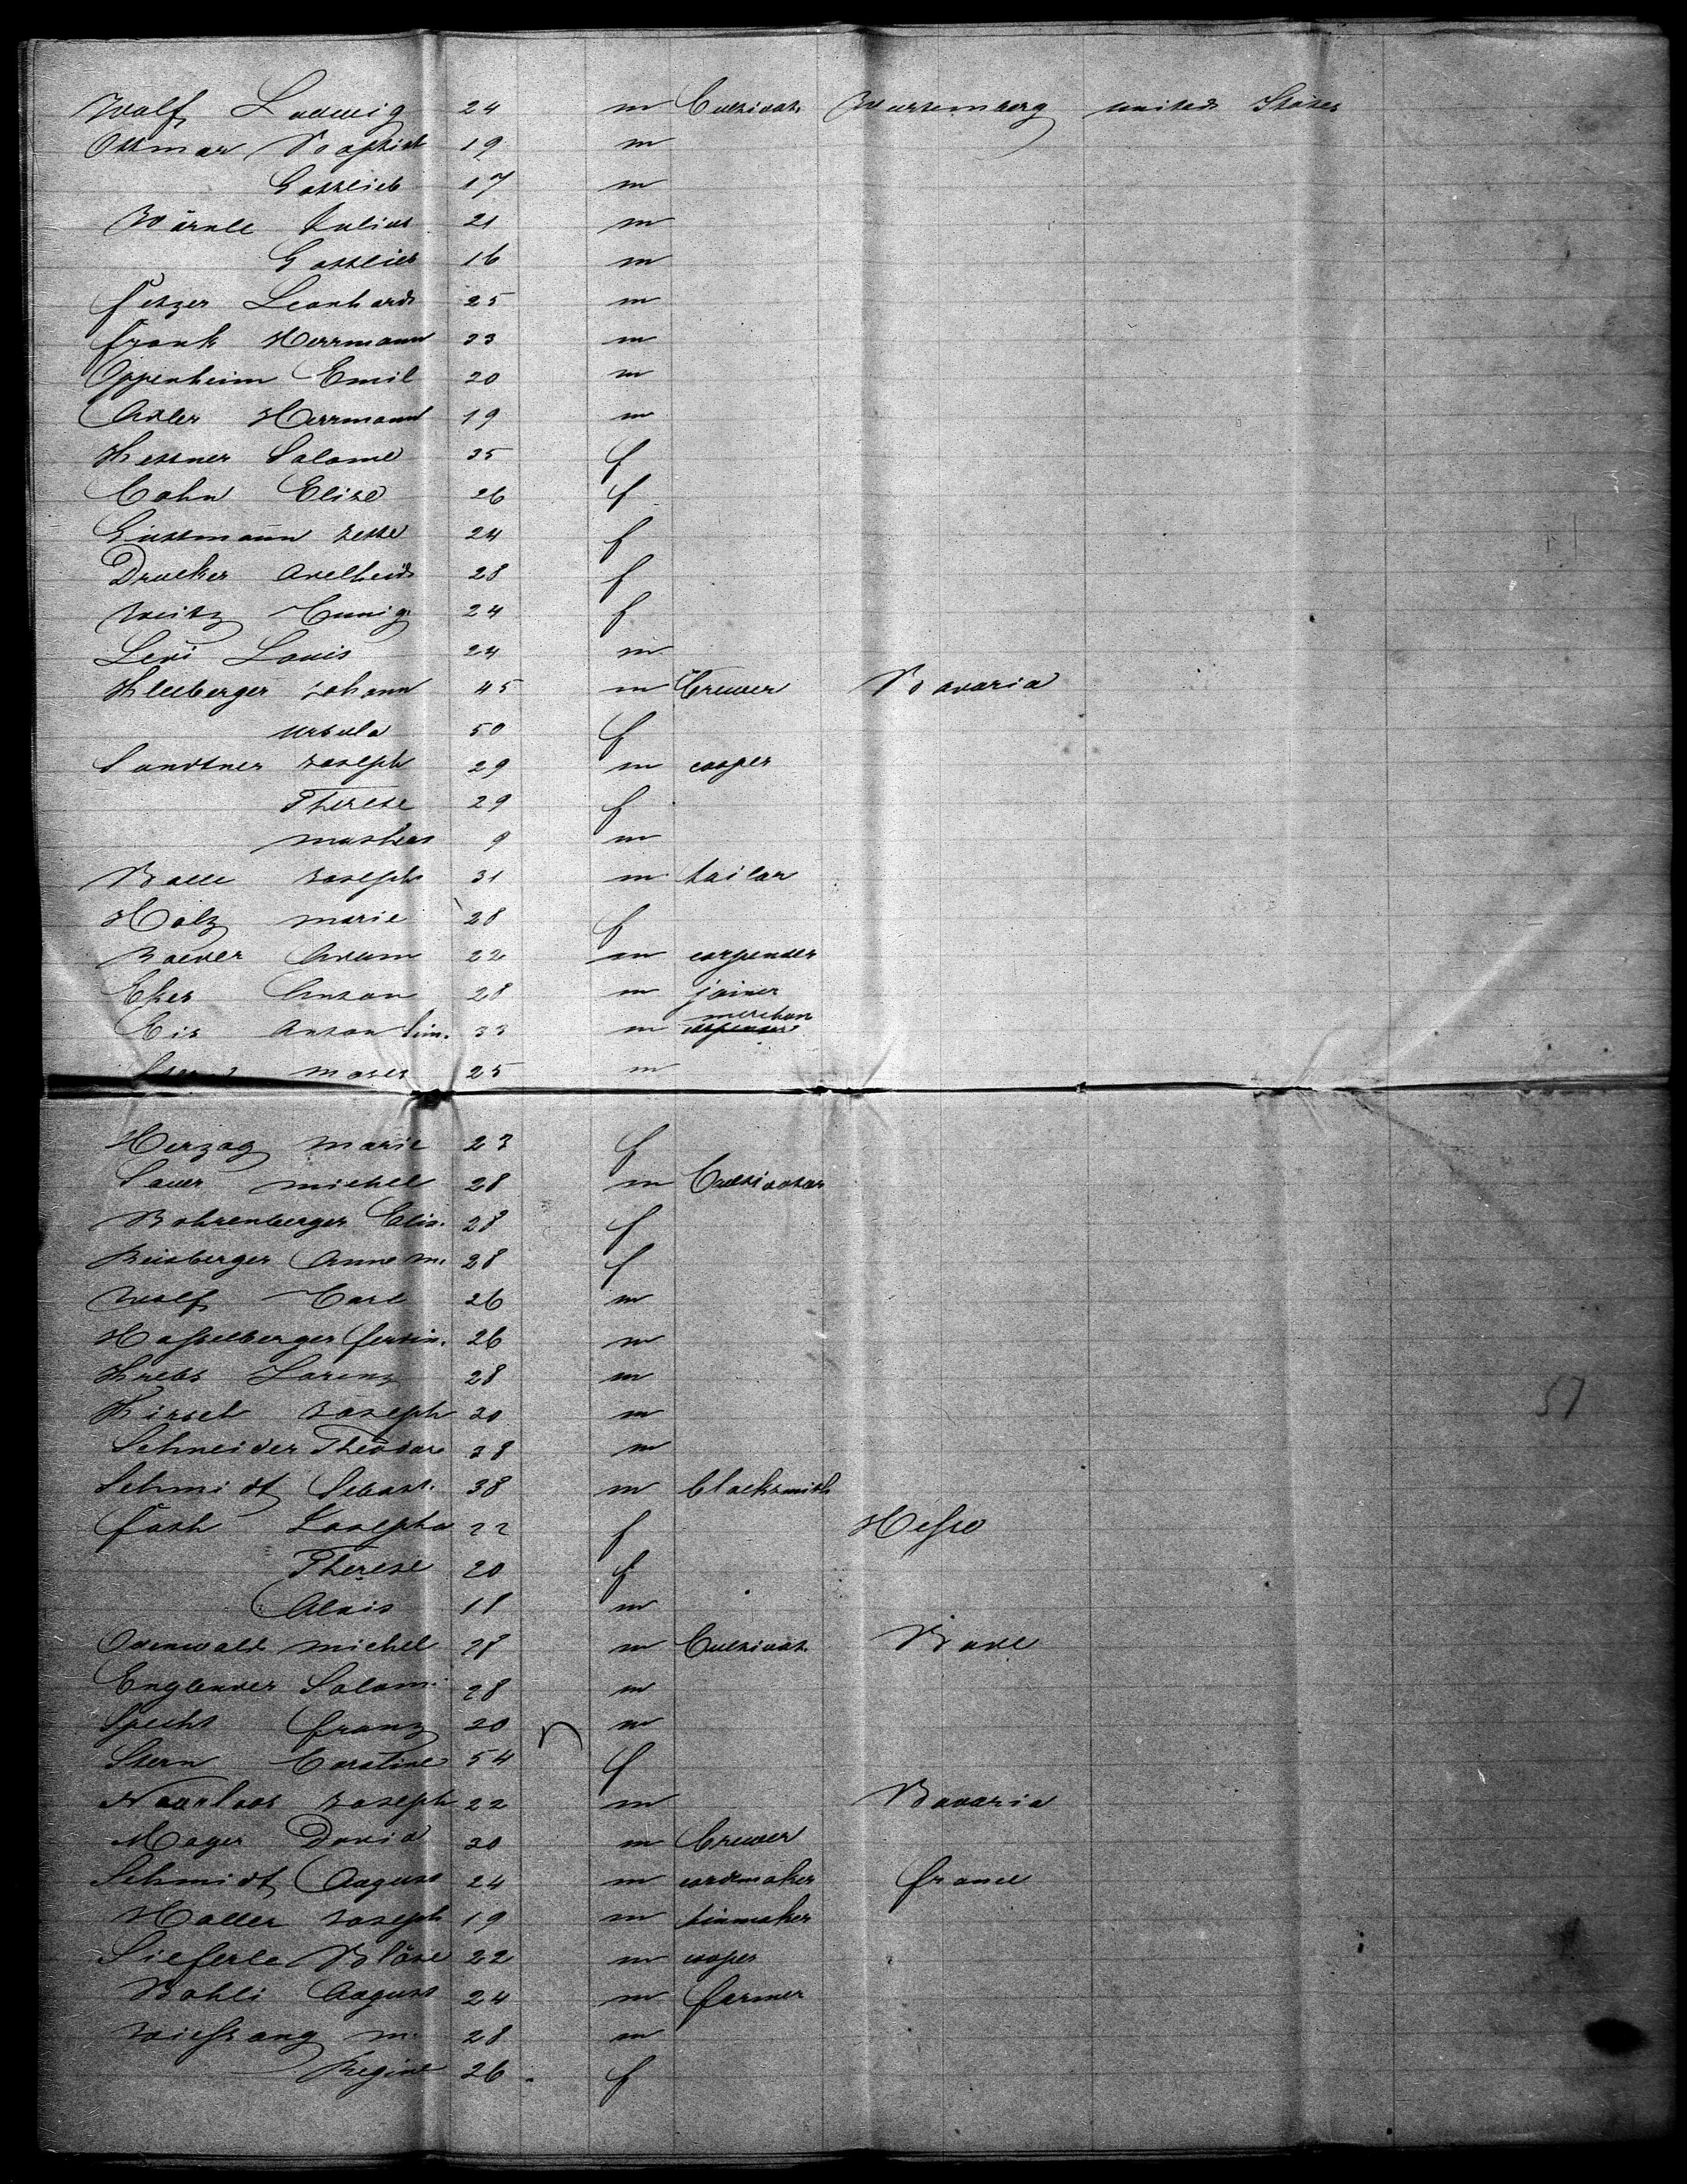 Wolf Ludwig 24 m Cultivat. Wurtemberg united States
Ottmar Baptist 19 m
Gottlieb 17 m
Wärnle Julius 21 m
Gottlieb 16 m
Fetzer Leonhard 25 m
Frank Herrmann 33 m
Oppenheim Emil 20 m
Adler Herrmann 19 m
Kettner Salome 35 f
Cohn Elise 26 f
Gutmann Jette 24 f
Drucker Adelheid 28 f
Weitz Cunig. 24 f
Levi Louis 24 m
Kleeberger Johann 45 m brewer Bavaria
Ursula 50 f
Sandtner Joseph 29 m cooper
Therese 29 f
Mathias 9 m
Balle Joseph 31 m tailor
Holz Marie 28 f
Adam 22 m carpender
Anton 28 m joiner
Eis Anton Sim. 33 m merchan
Moses 25 m
Herzog Marie 23 f
Sauer Michel 28 m Cultivator
Bohrenberger Elis. 28 f
Reisberger Anne M. 28 f
Wolf Carl 26 m
Hasselberger Ferdin. 26 m
Krebs Lorenz 28 m
Hirsch Joseph 30 m
Schneider Theodore 38 m
Schmidt Sebast. 38 m blacksmith
Fath Josepha 22 f Hesse
Therese 20 f
Alois 18 m
Odenwald Michel 28 m Cultivat. Bade
Englender Salom. 28 m
Specht Franz 20 m
Stern Caroline 54 f
Joseph 22 m Bavaria
Mager David 20 m brewer
Schmidt August 24 m cordmaker France
Haller Joseph 19 m tinmaker
Sieferle Bläse 22 m cooper
Bohli August 24 m farmer
M. 28 m
Regine 26 f
57